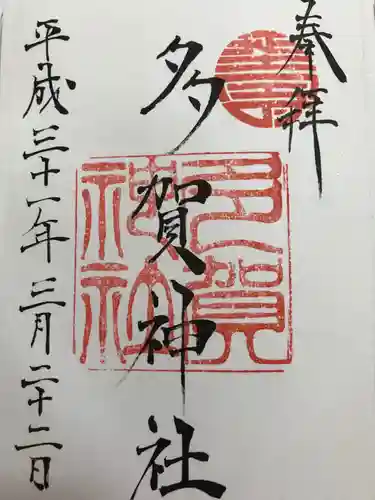 奉拝
多賀神社
多賀神社
平成三十一年三月二十二日